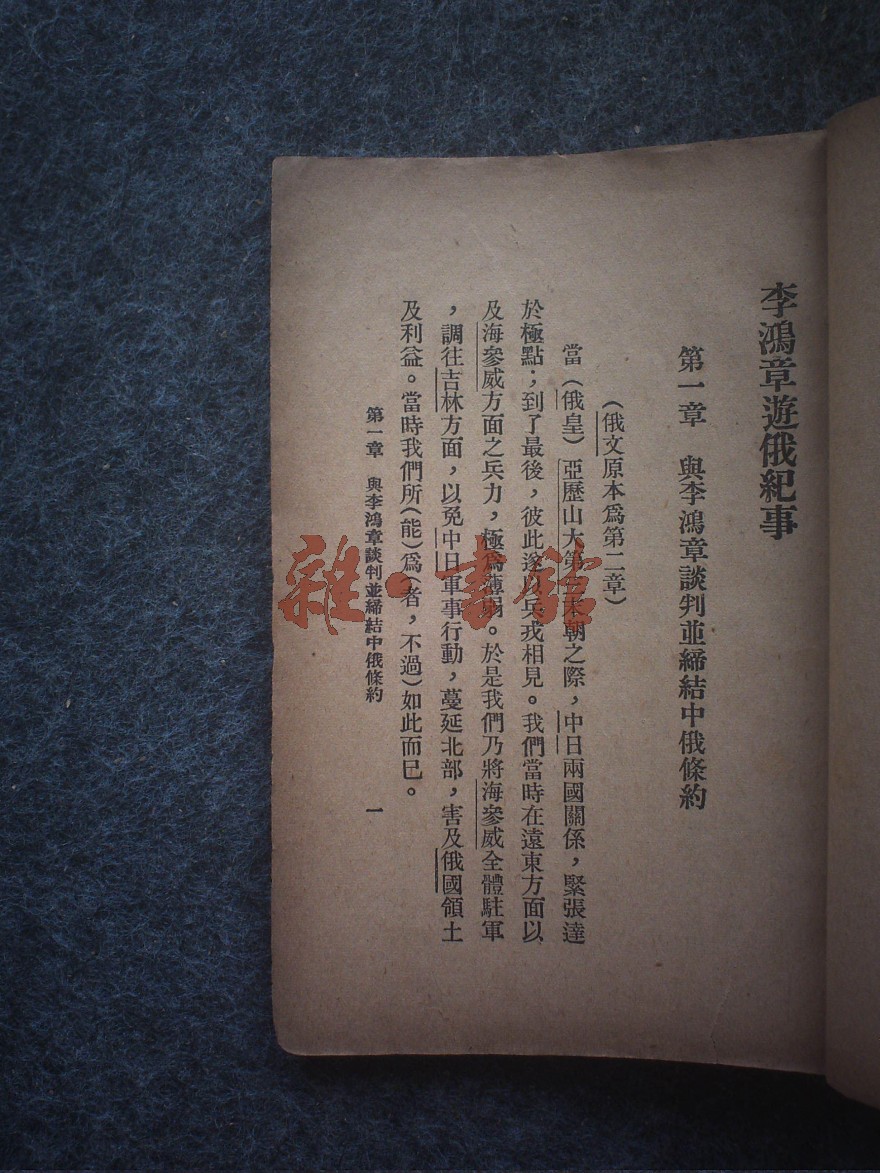 李鴻章遊俄紀事
第一章　與李鴻章談判並締結中俄條約
（俄文原本爲第二章）
當（俄皇）亞歷山大第　末朝之際，中日兩國關係，緊張達
於極點；到了最後，彼此遂以兵戎相見。我們當時在遠東方面以
及海參威方面之兵力，極爲薄弱。於是我們乃將海參威全體駐軍
，調往吉林方面，以免中日軍事行動，蔓延北部，害及俄國領土
及利益。當時我們所（能）爲（者，不過）如此而已。
第一章　與李鴻章談判並締結中俄條約
一
雜·書館